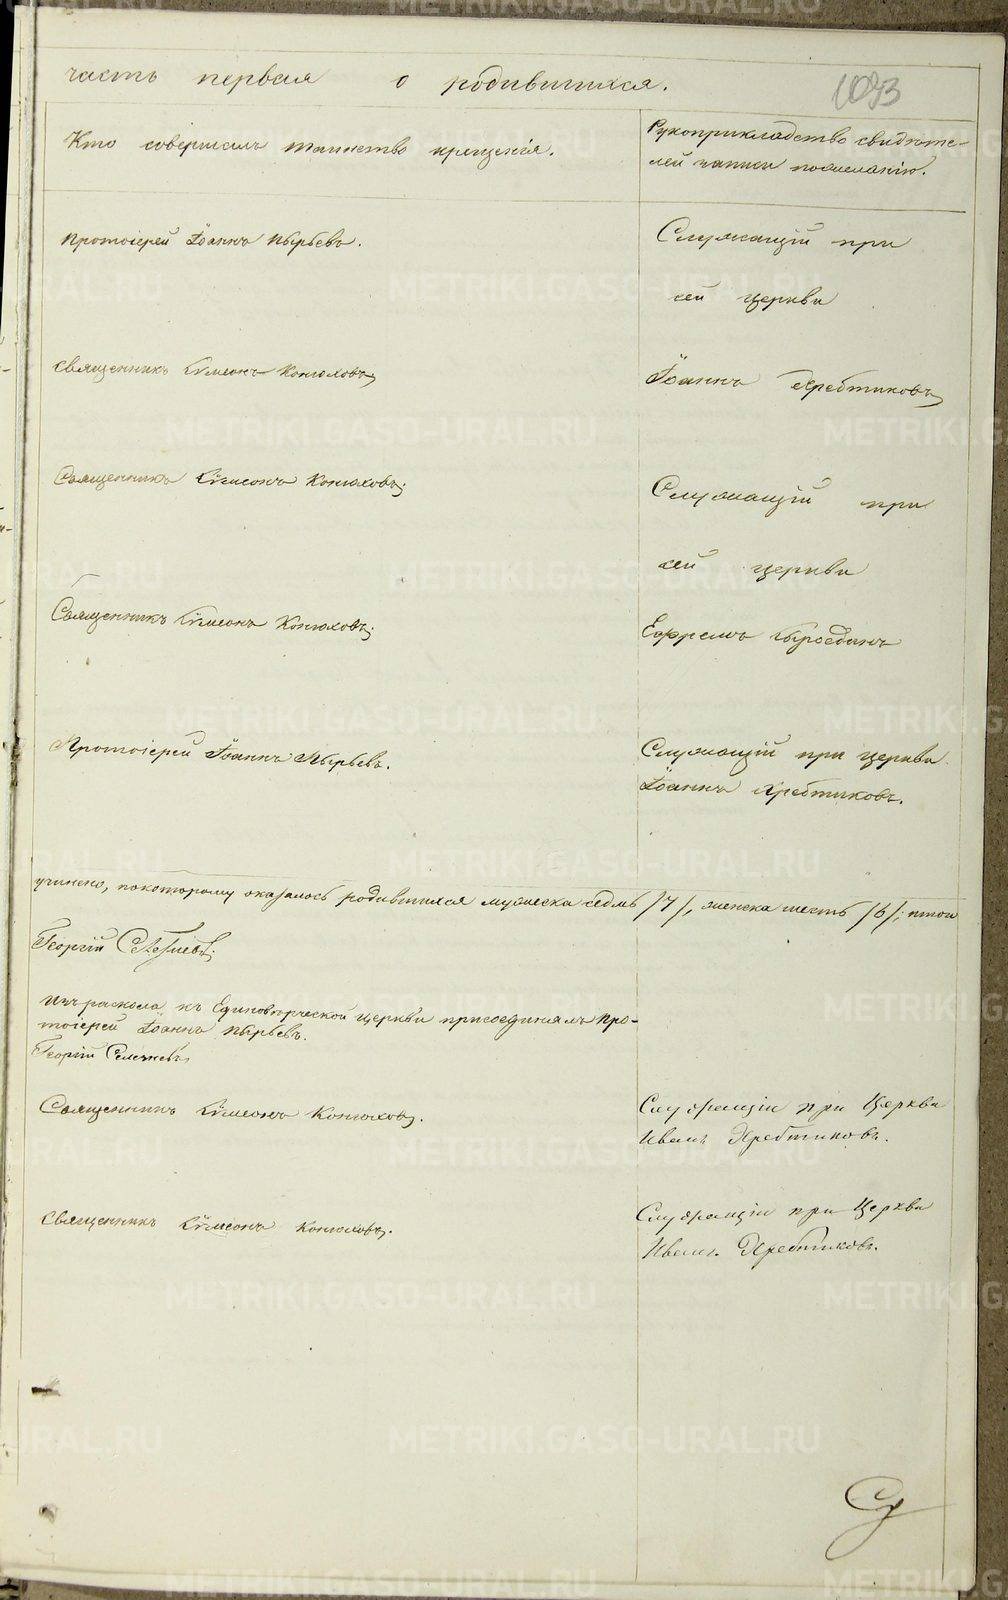 часть первая о родившихся.
1093
Кто совершалъ таинство крещенія.
Рукоприкладство свидѣте-
лей записи по желанію.
протоіерей Іоаннъ Пырьевъ.
Служащій при
сей церкви
священникъ Сѵмеонъ Конюховъ
Іоаннъ Хребтиковъ
Священникъ Сѵмеонъ Конюховъ.
Служащій при
сей церкви
Священникъ Сѵмеонъ Конюховъ.
Ефремъ
Протоіерей Іоаннъ Пырьевъ.
Служащій при церкви
Іоаннъ Хребтиковъ.
учинено, по которому оказалось родившихся мужеска седмь /7/, женска шесть /6/; итого
Георгій
Изъ раскола къ Единовѣрческой церкви присоединялъ про-
тоіерей Іоаннъ Пырьевъ.
Георгій
Священникъ Сѵмеонъ Конюховъ.
Служащій при Церкви
Иванъ Хребтиковъ.
священникъ Сѵмеонъ Конюховъ.
Служащій при Церкви
Иванъ Хребтиковъ.
METRIKI.GASO-URAL.RU